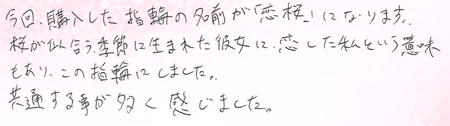 今回、購入した指輪の名前が「恋桜」になります。
桜が似合う季節に生まれた彼女に、恋した私という意味
もあり、この指輪にしました。
共通する事が多く感じました。